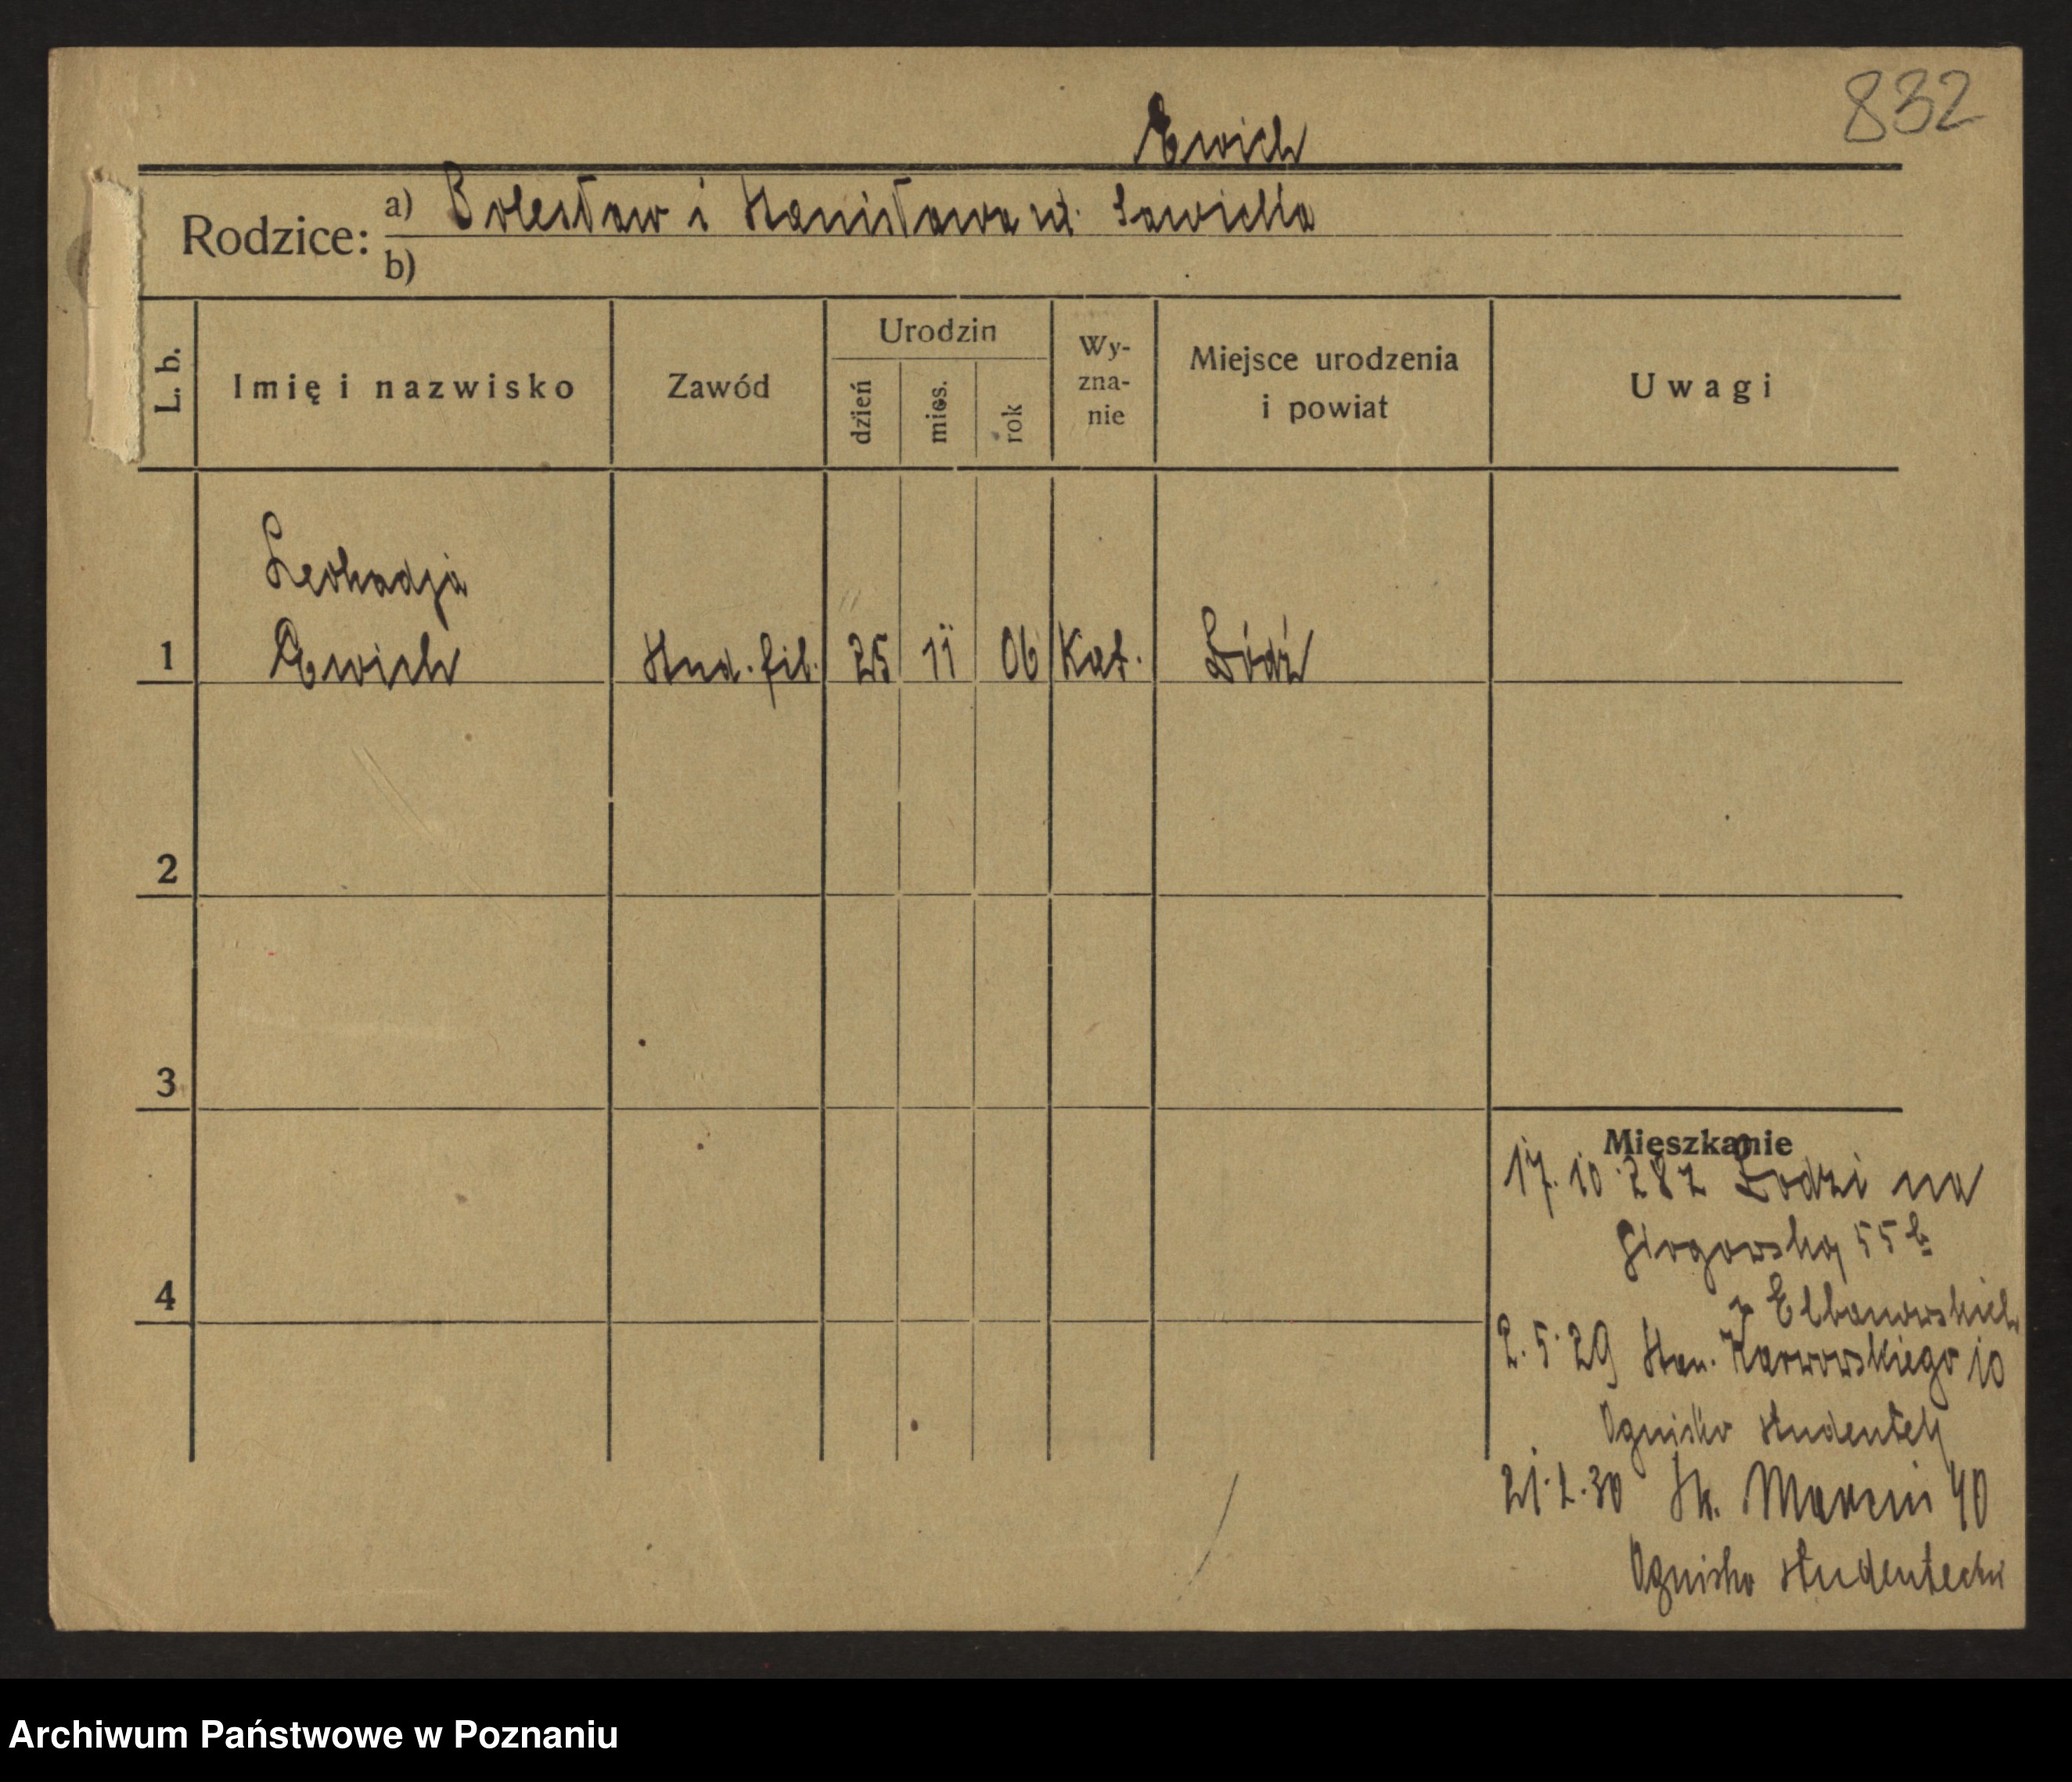 832
Ewich
Rodzice: a) Bolesław i Stanisława ur. Sawicka
b)
L. b. Imię i nazwisko Zawód Urodzin dzień mies. rok Wy-zna-nie Miejsce urodzenia i powiat Uwagi
Leokadja
1 Ewich Stud. fil. 25 11 06 Kat. Łódź
2
3
Mieszkanie
17.10.28 z Łodzi na
Głogowską 55 b
4
z Elbanowskich
2.5.29 Stan. Karwowskiego 10
Ognisko studentek
21.2.30 Sk. Marcin 40
Ognisko studenteck
Archiwum Państwowe w Poznaniu